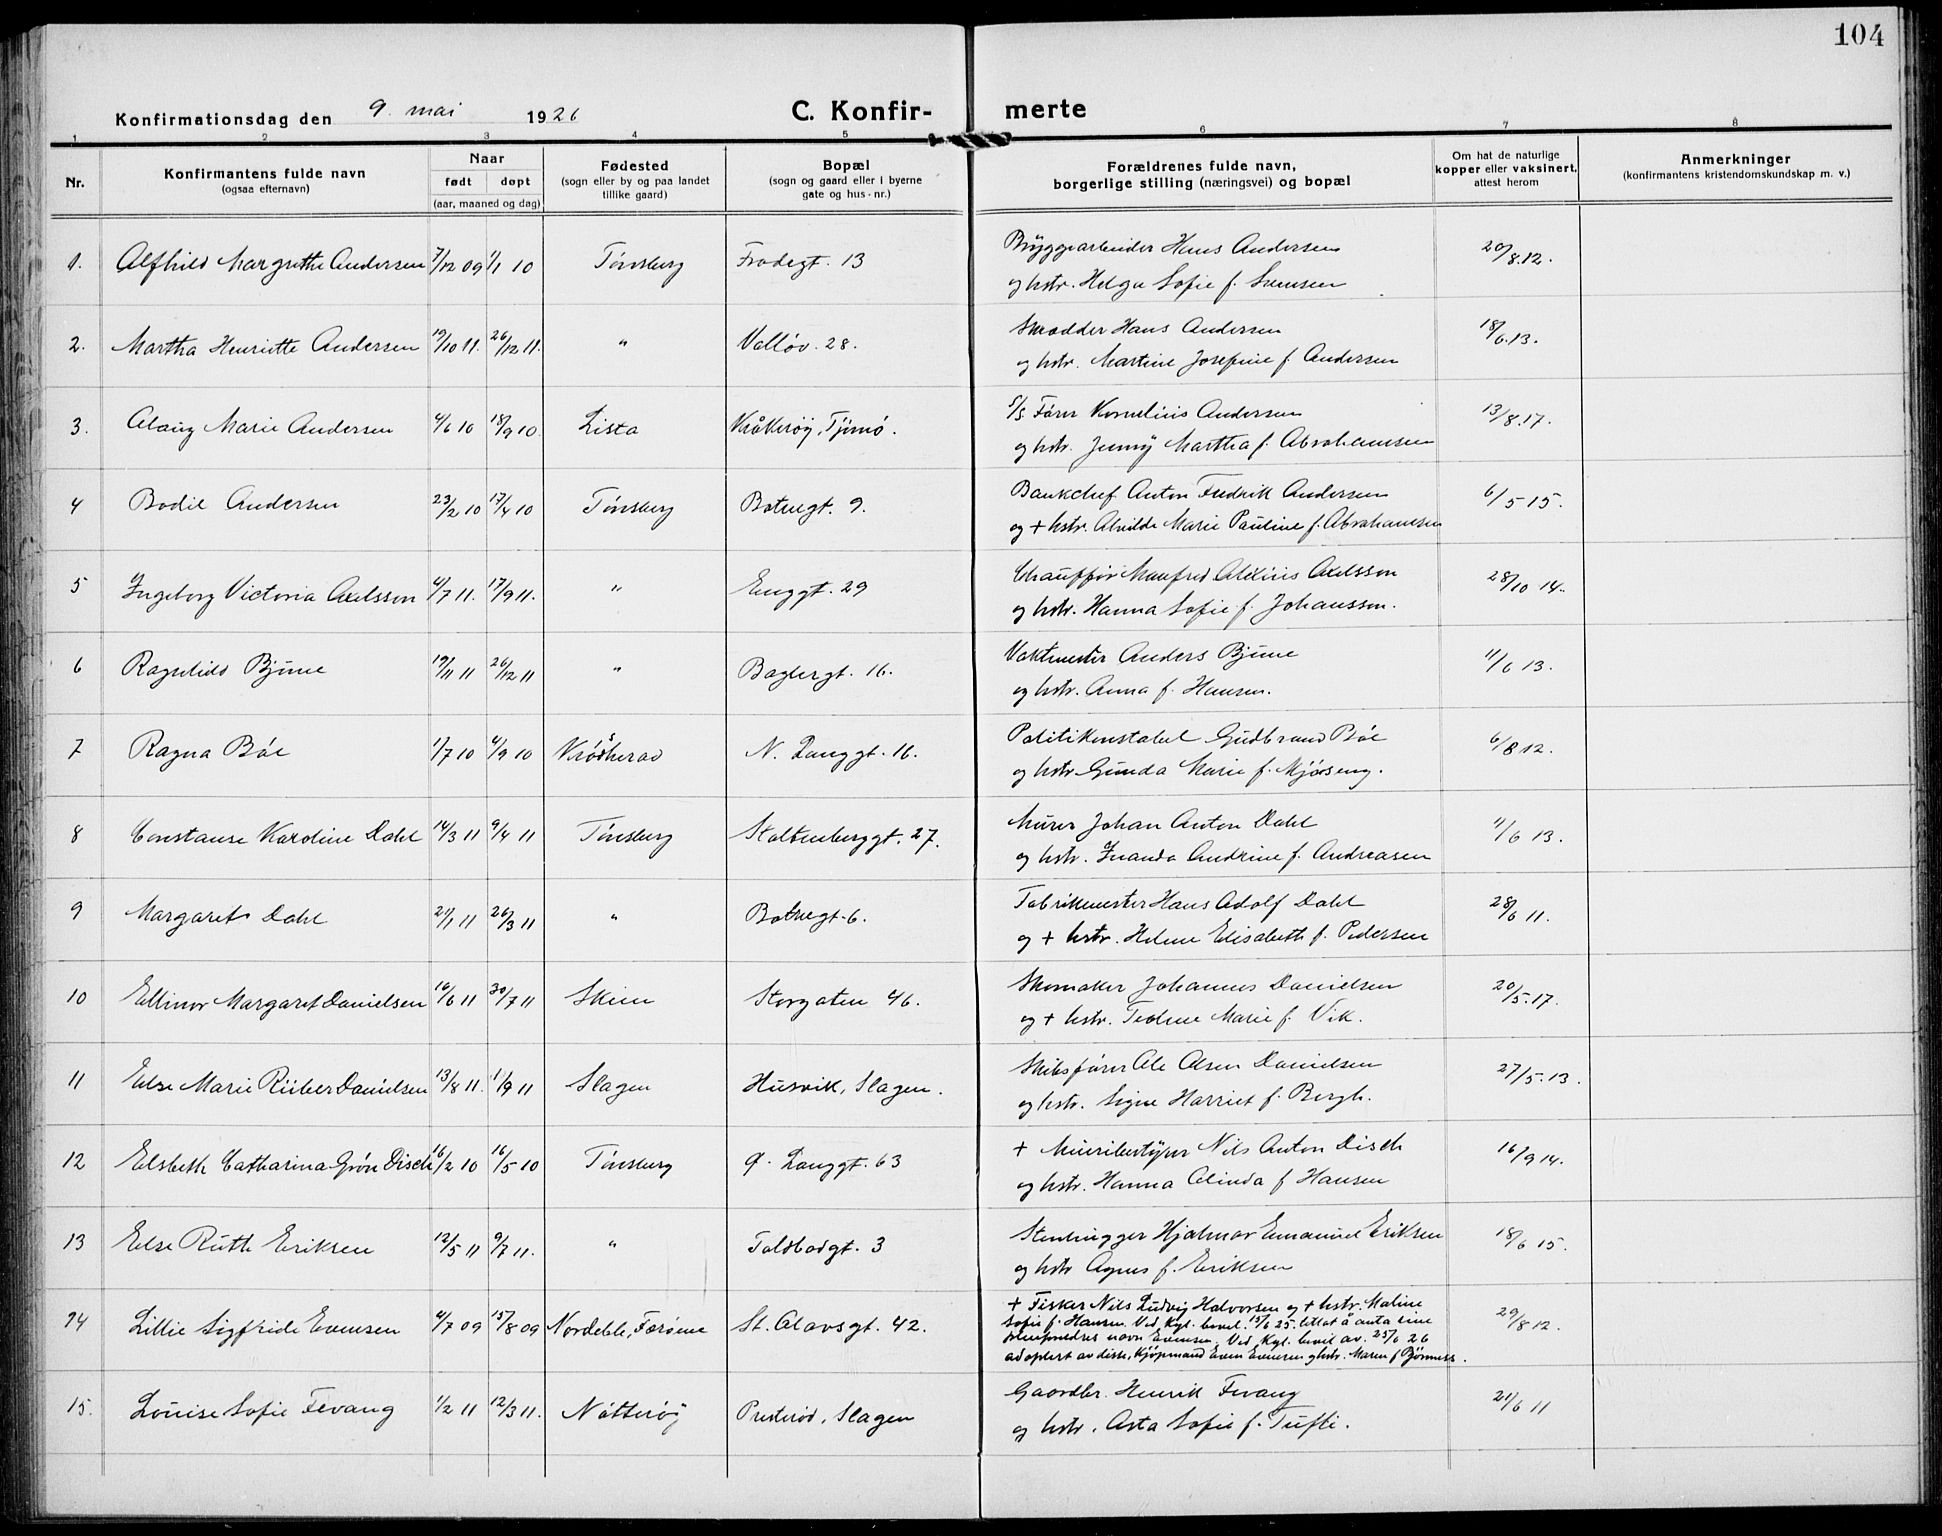 104
Konfirmationsdag den 9. mai 1926 C. Konfir- merte
1 2 3 4 5 6 7 8
Nr. Konfirmantens fulde navn Naar Fødested Bopæl Forældrenes fulde navn, Om hat de naturlige Anmerkninger
(ogsaa efternavn) født døpt (sogn eller by og paa landet (sogn og gaard eller i byerne borgerlige stilling (næringsvei) og bopæl kopper eller vaksinert, (konfirmantens kristendomskundskap m. v.)
(aar, maaned og dag) tillike gaard) gate og hus-nr.) attest herom
1. Alfhild Margrethe Andersen 7/12 09 1/1 10 Tønsberg Frodegt. 13 Bryggearbeider Hans Andersen 20/8.12.
og hstr. Helga Sofie f.
2. Martha Henriette Andersen 19/10 11. 26/12 11. " Valløv. 28. Skrædder Hans Andersen 18/6.13.
og hstr. Martine Josefine f. Andersen
3. Alaug Marie Andersen 4/6 10 18/9 10. Lista Kråkerøy, Tjømø. S/S. Fører Kornelius Andersen 13/8.17.
og hstr. Jenny Martha f. Abrahamsen
4 Bodil Andersen 23/2 10 17/4 10 Tønsberg Botnegt. 9. Bankchef Anton Fredrik Andersen 6/5 15.
og + hstr. Alvilde Marie Pauline f. Abrahamsen
5 Ingeborg Victoria Axelsson 4/7 11. 17/9 11. " Enggt. 29 Chauffør Manfred Alexius Axelsson 28/10 14.
og hstr. Hanna Sofie f. Johansson.
6 Ragnhild Bjune 19/11 11 26/12 11 " Baglergt. 16. Vaktmester Anders Bjune 11/6 13.
og hstr. Anna f. Hansen.
7 Ragna Bøe 1/7 10 4/9 10 Krødherad N. Langgt. 16. Politikonstabel Gudbrand Bøe 6/8 12.
og hstr Gunda Marie f. Mjøseng.
8 Constanse Karoline Dahl 14/3 11 9/4 11 Tønsberg Stoltenberggt. 27. Murer Johan Anton Dahl 11/6 13.
og hstr. Inanda Andrine f. Andreasen
9 Margaret Dahl 21/1 11 26/3 11 " Botnegt. 6. Fabrikmester Hans Adolf Dahl 28/6 11.
og + hstr. Helene Elisabeth f. Pedersen
10 Ellinor Margaret Danielsen 16/6 11 30/7 11 Skien Storgaten 46. Skomaker Johannes Danielsen 20/5.17.
og + hstr. Teoline Marie f. Vik.
11 Else Marie Riiber Danielsen 13/8 11. 1/9 11 Slagen Husvik, Slagen. Skibsfører Ole Olsen Danielsen 27/5.13.
og hstr. Signe Harriet f. Bergh.
12 Elsbeth Catharina Grøn Disch 16/2 10 16/5 10 Tønsberg Ø. Langgt. 63 + Nils Anton Disch 16/9 14.
og hstr. Hanna Alinda f Hansen
13 Else Ruth Eriksen 12/5 11 9/7 11. " Toldbodgt. 3 Stenhugger Hjalmar Emanuel Eriksen 18/6 15.
og hstr Agnes f. Eriksen
14 Lillie Sigfride Evensen 4/7 09 15/8 09 Nordeble, Færøene St. Olavsgt. 42. + Fisker Nils Ludvig Halvorsen og + hstr. Maline 29/8 12.
Sofie f. Hansen. Ved Kgl. bevil. 15/6 25. tillat å anta sine
navn Evensen. Ved Kgl. bevil av. 25/6 26
adoptert av disse, kjøpmand Even Evensen og hstr. Maren f Bjønness.
15. Louise Sofie Fevang 1/2 11 12/3 11. Nøtterøy Presterød, Slagen Gaardbr. Henrik Fevang 21/6 11
og hstr. Asta Sofie f. Tufte.